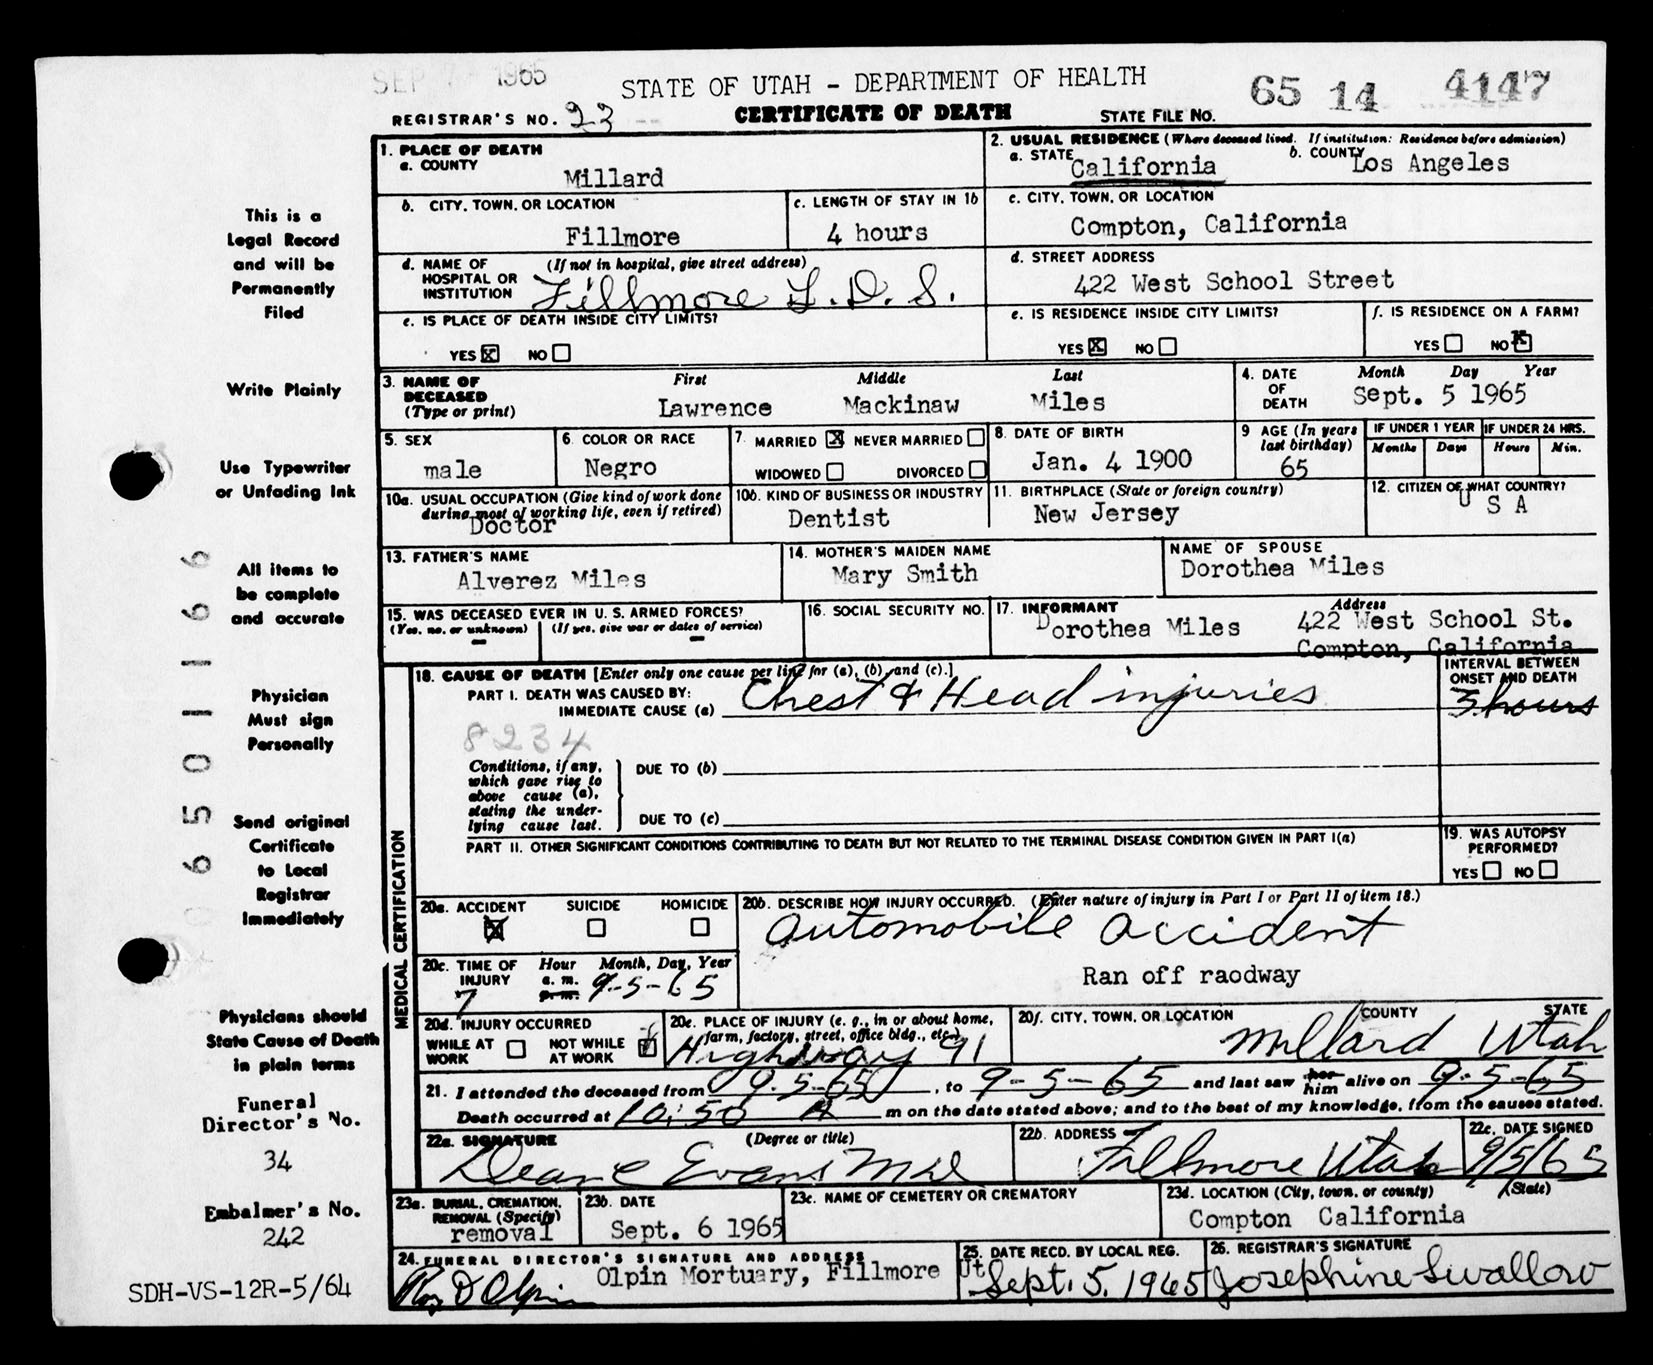 SEP 7 1965
STATE OF UTAH - DEPARTMENT OF HEALTH
65 14 4147
REGISTRAR'S NO. 23
CERTIFICATE OF DEATH
STATE FILE NO.
1. PLACE OF DEATH
a. COUNTY
Millard
2. USUAL RESIDENCE (Where deceased lived. If institution: Residence before admission)
a. STATE California
b. COUNTY Los Angeles
b. CITY, TOWN, OR LOCATION
Fillmore
c. LENGTH OF STAY IN 1b
4 hours
c. CITY, TOWN, OR LOCATION
Compton, California
d. NAME OF HOSPITAL OR INSTITUTION
(If not in hospital, give street address)
Fillmore L.D.S.
d. STREET ADDRESS
422 West School Street
e. IS PLACE OF DEATH INSIDE CITY LIMITS?
YES X NO
e. IS RESIDENCE INSIDE CITY LIMITS?
YES X NO
f. IS RESIDENCE ON A FARM?
YES NO X
3. NAME OF DECEASED
(Type or print)
First Middle Last
Lawrence Mackinaw Miles
4. DATE OF DEATH
Month Day Year
Sept. 5 1965
5. SEX
male
6. COLOR OR RACE
Negro
7. MARRIED X NEVER MARRIED
WIDOWED DIVORCED
8. DATE OF BIRTH
Jan. 4 1900
9 AGE (In years last birthday)
65
IF UNDER 1 YEAR
Months Days
IF UNDER 24 HRS.
Hours Min.
10a. USUAL OCCUPATION (Give kind of work done
during most of working life, even if retired)
Doctor
10b. KIND OF BUSINESS OR INDUSTRY
Dentist
11. BIRTHPLACE (State or foreign country)
New Jersey
12. CITIZEN OF WHAT COUNTRY?
U S A
13. FATHER'S NAME
Alverez Miles
14. MOTHER'S MAIDEN NAME
Mary Smith
NAME OF SPOUSE
Dorothea Miles
15. WAS DECEASED EVER IN U. S. ARMED FORCES?
(Yes, no, or unknown) (If yes, give war or dates of service)
- -
16. SOCIAL SECURITY NO.
17. INFORMANT
Dorothea Miles
Address
422 West School St.
Compton, California
18. CAUSE OF DEATH [Enter only one cause per line for (a), (b), and (c).]
PART I. DEATH WAS CAUSED BY:
IMMEDIATE CAUSE (a) Chest & Head injuries
INTERVAL BETWEEN
ONSET AND DEATH
3 hours
8234
Conditions, if any,
which gave rise to
above cause (a),
stating the under-
lying cause last.
DUE TO (b)
DUE TO (c)
PART II. OTHER SIGNIFICANT CONDITIONS CONTRIBUTING TO DEATH BUT NOT RELATED TO THE TERMINAL DISEASE CONDITION GIVEN IN PART I(a)
19. WAS AUTOPSY PERFORMED?
YES NO
MEDICAL CERTIFICATION
20a. ACCIDENT SUICIDE HOMICIDE
X
20b. DESCRIBE HOW INJURY OCCURRED. (Enter nature of injury in Part I or Part II of item 18.)
Automobile accident
Ran off raodway
20c. TIME OF INJURY
Hour Month, Day, Year
7 a. m. p. m. 9-5-65
20d. INJURY OCCURRED
WHILE AT WORK NOT WHILE AT WORK
20e. PLACE OF INJURY (e. g., in or about home,
farm, factory, street, office bldg., etc.)
Highway 91
20f. CITY, TOWN, OR LOCATION COUNTY STATE
Millard Utah
21. I attended the deceased from 9-5-65, to 9-5-65 and last saw her him alive on 9-5-65
Death occurred at 10:50 A m on the date stated above; and to the best of my knowledge, from the causes stated.
22a. SIGNATURE (Degree or title)
Dean C Evans MD
22b. ADDRESS
Fillmore Utah
22c. DATE SIGNED
9/5/65
23a. BURIAL, CREMATION, REMOVAL (Specify)
removal
23b. DATE
Sept. 6 1965
23c. NAME OF CEMETERY OR CREMATORY
23d. LOCATION (City, town, or county) (State)
Compton California
24. FUNERAL DIRECTOR'S SIGNATURE AND ADDRESS
Roy D Olpin Olpin Mortuary, Fillmore Ut
25. DATE RECD. BY LOCAL REG.
Sept. 5, 1965
26. REGISTRAR'S SIGNATURE
Josephine Swallow
This is a
Legal Record
and will be
Permanently
Filed
Write Plainly
Use Typewriter
or Unfading Ink
All items to
be complete
and accurate
Physician
Must sign
Personally
Send original
Certificate
to Local
Registrar
Immediately
Physicians should
State Cause of Death
in plain terms
Funeral
Director's No.
34
Embalmer's No.
242
SDH-VS-12R-5/64
65011166